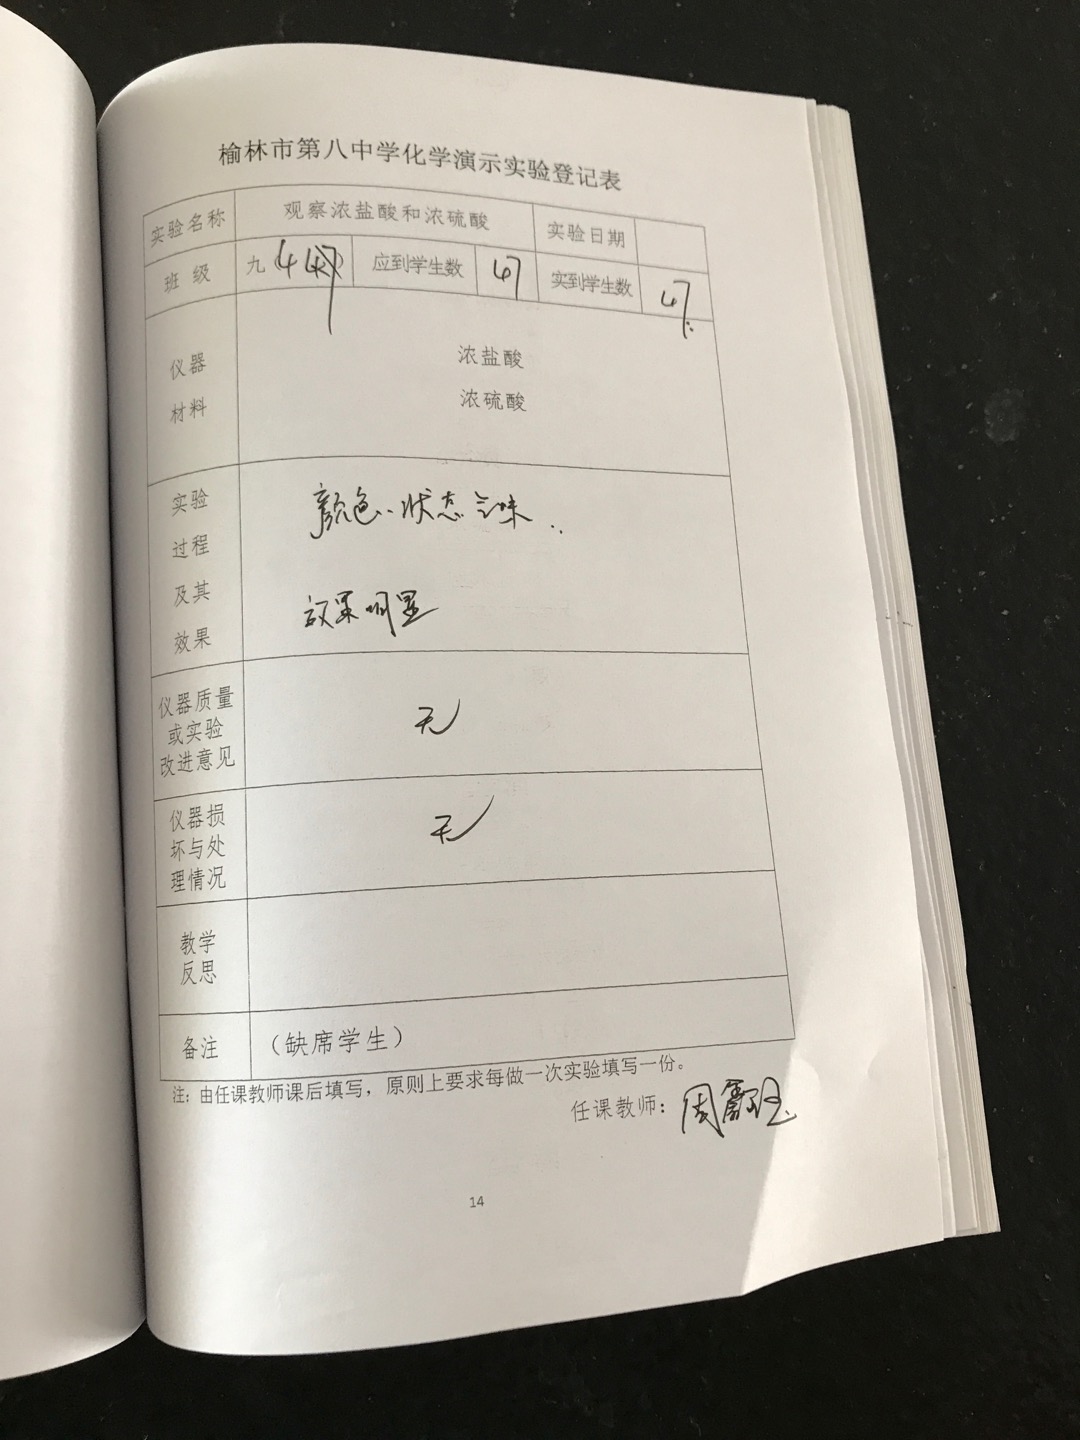 榆林市第八中学化学演示实验登记表
实验名称 观察浓盐酸和浓硫酸 实验日期
班 级 九(4 应到学生数 47 实到学生数 47.
仪器
材料
浓盐酸
浓硫酸
实验
过程
及其
效果
颜色、状态 气味..
效果明显
仪器质量
或实验
改进意见
无
仪器损
坏与处
理情况
无
教学
反思
备注 (缺席学生)
注:由任课教师课后填写,原则上要求每做一次实验填写一份。
任课教师: 周
14